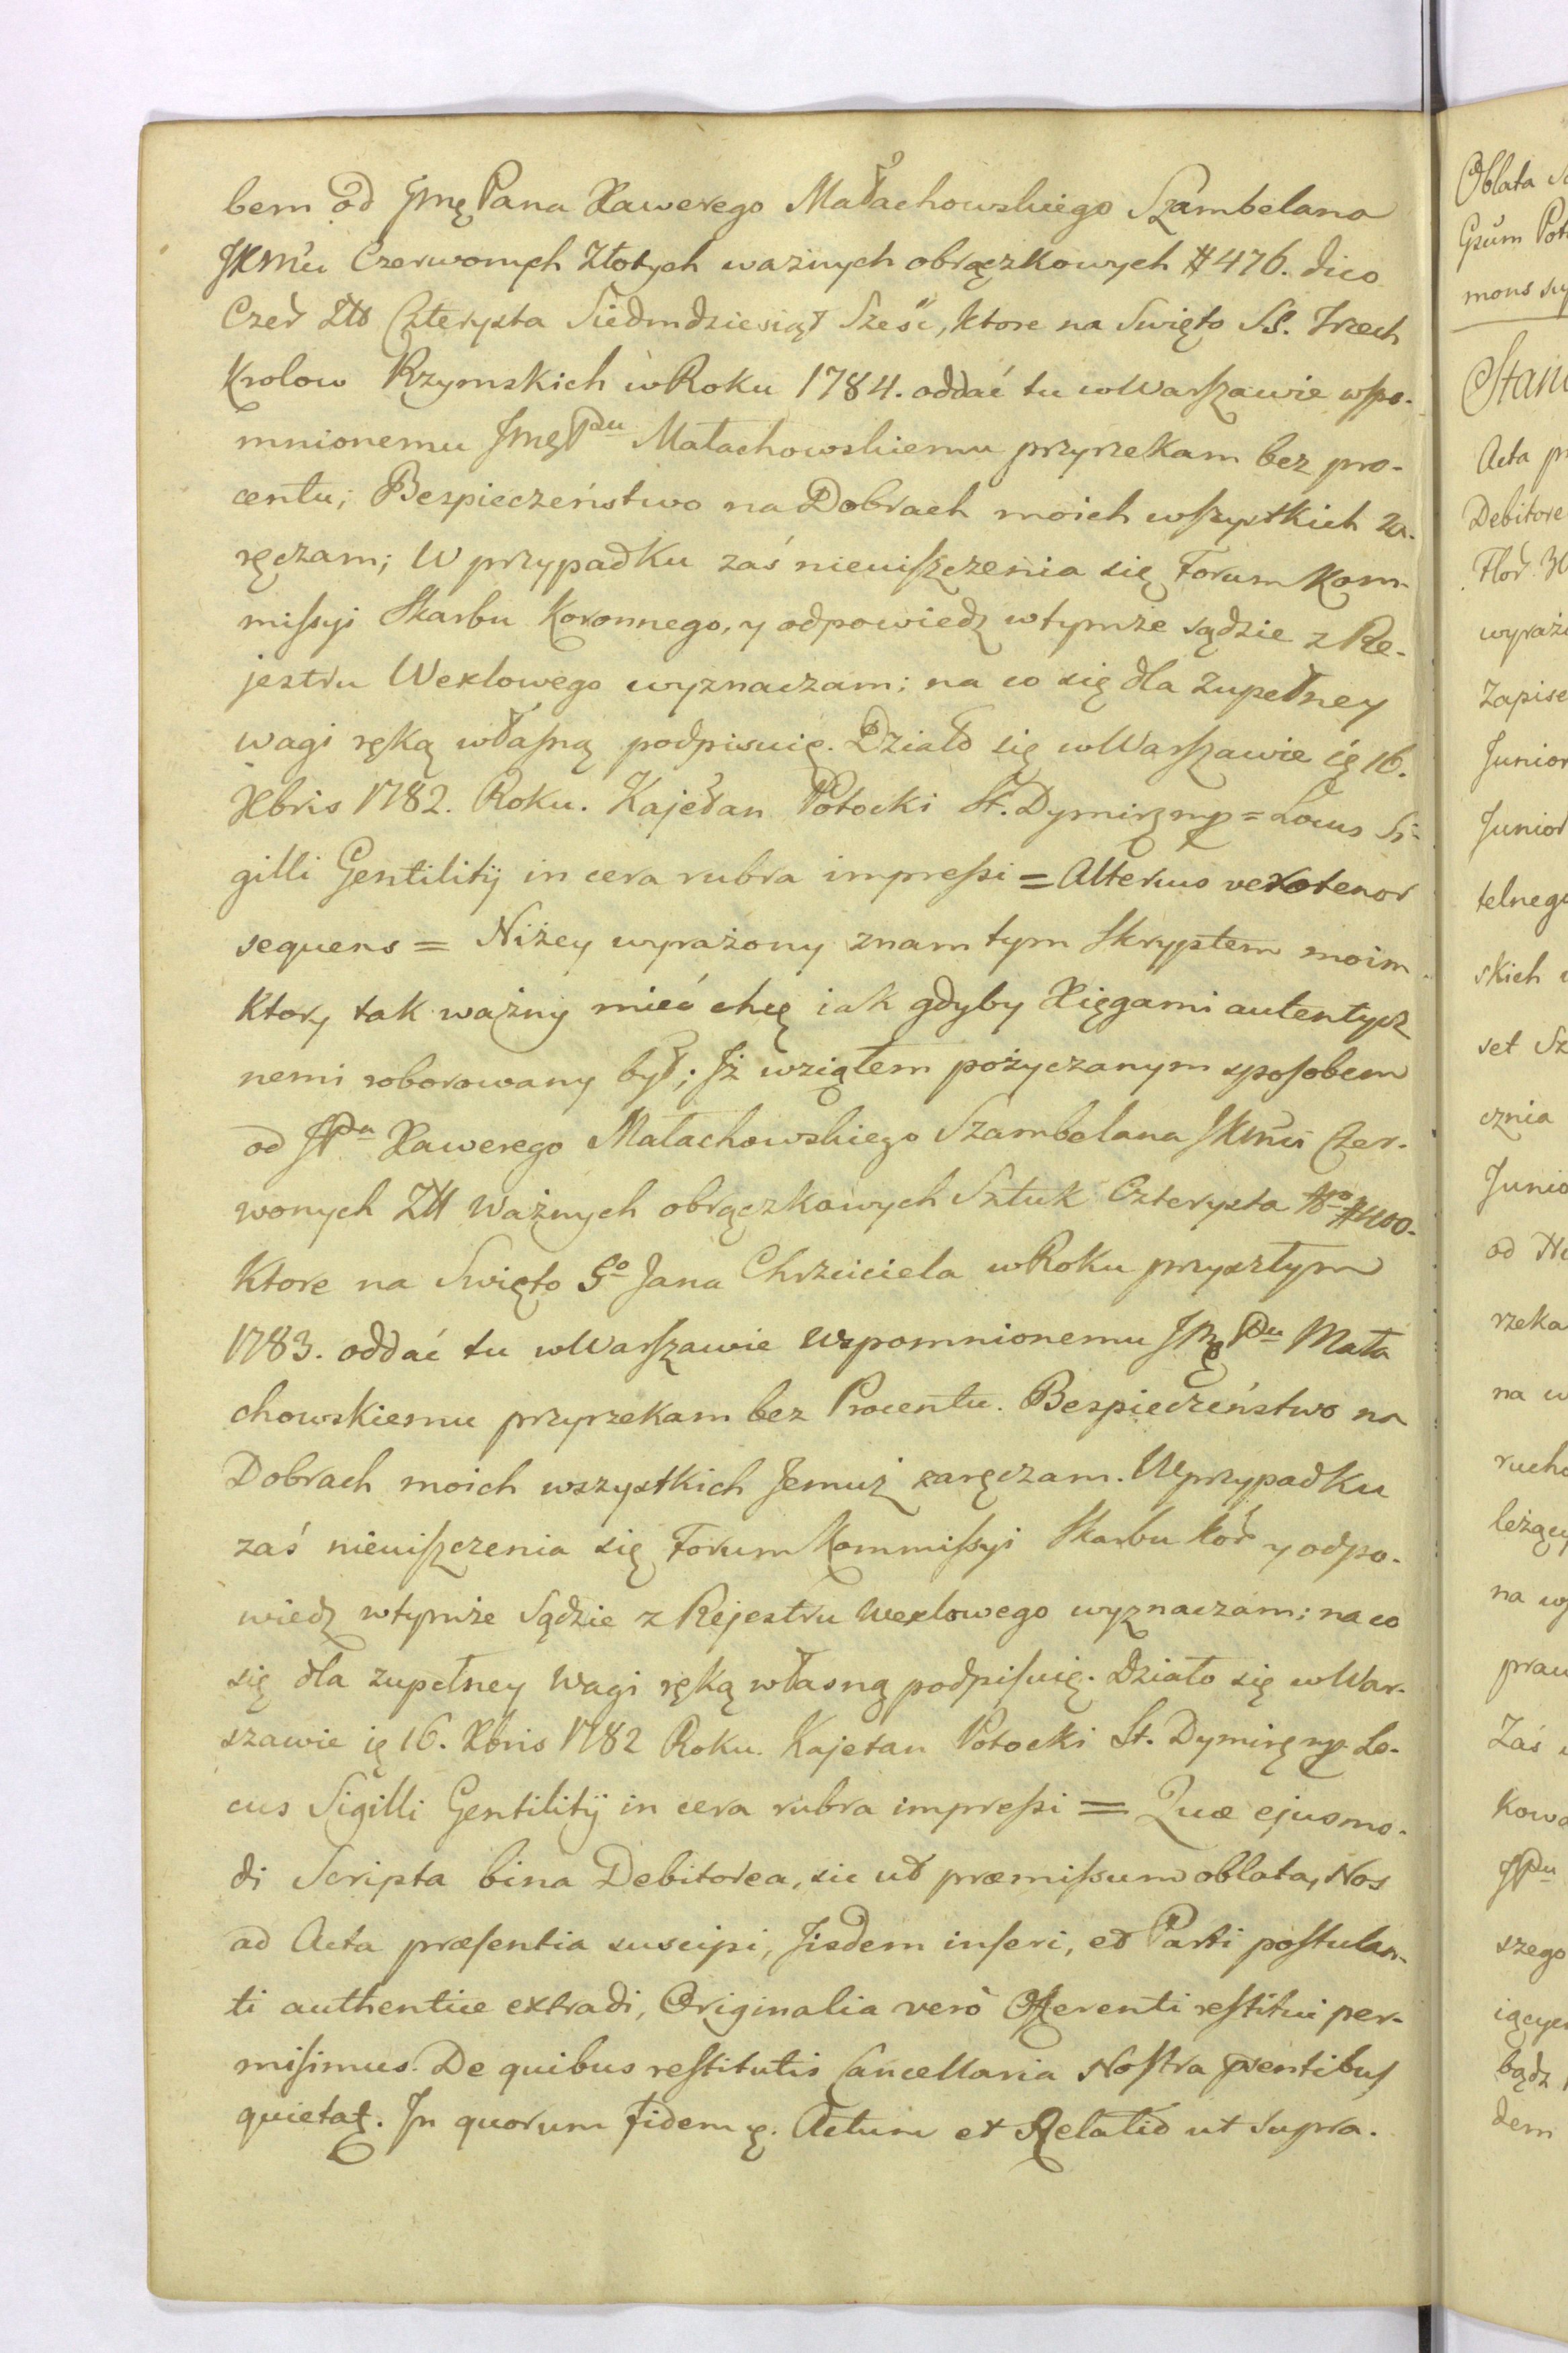 bem od Jmę Pana Xawerego Małachowskiego Szambelana
JKMći Czerwonych Złotych ważnych obrączkowych # 476. dico
Czer Złł Czterysta Siedmdziesiąt Sześć, ktore na Swięto SS. Trzech
Krolow Rzymskich w Roku 1784. oddać tu w Warszawie wspo-
mnionemu Jmę Panu Małachowskiemu przyrzekam bez pro-
centu; Bespieczeństwo na Dobrach moich wszystkich za-
ręczam; W przypadku zaś nieuiszczenia się Forum Kom-
missyi Skarbu Koronnego, y odpowiedz w tymże sądzie z Re-
jestru Wexlowego wyznaczam; na co się dla zupełney
wagi ręką własną podpisuię. Działo się w Warszawie ię 16.
Xbris 1782. Roku. Kajetan Potocki St. Dymirz mp = Locus Si-
gilli Gentilitij in cera rubra impressi = Alterius vero tenor
sequens = Niżey wyrażony znam tym Skryptem moim
ktory tak ważny mieć chcę iak gdyby Xięgami autentycz
nemi roborowany był; Jż wziąłem pożyczanym sposobem
od JPa Xawerego Małachowskiego Szambelana JKMći Czer-
wonych Złł ważnych obrączkowych Sztuk Czterysta No # 400.
Ktore na Swięto So Jana Chrzciciela w Roku przyszłym
1783. oddać tu w Warszawie wzpomnionemu Panu Mała
chowskiemu przyrzekam bez Procentu. Bespieczeństwo na
Dobrach moich wszystkich Jemuż zaręczam. W przypadku
zaś nieuiszczenia się Forum Kommissyi Skarbu Kor y odpo-
wiedz w tymże Sądzie z Rejestru Wexlowego wyznaczam; na co
się dla zupełney wagi ręką własną podpisuię. Działo się w War-
szawie ię 16. Xbris 1782 Roku. Kajetan Potocki St. Dymirz mp. Lo-
cus Sigilli Gentilitij in cera rubra impressi = Quæ ejusmo-
di Scripta bina Debitorea, sic ut præmissum oblata, Nos
ad Acta præsentia suscipi, Jisdem inseri, et Parti postulan-
ti authentice extradi, Originalia verò Offerenti restitui per-
misimus. De quibus restitutis Cancellaria Nostra pręntibus
quietat. Jn quorum fidem ę. Actum et Relatio ut supra.
Oblata
Gsum Pot
mons
Stan
Acta pr
Debitore
Flor. 36
wyraż
Zapise
Junior
Junior
telnego
skich
set Sz
cznia
Junio
od
rzeka
na w
rucho
leżący
na wy
praw
Zaś
kowa
JPu
szego
iący
bądz
dem